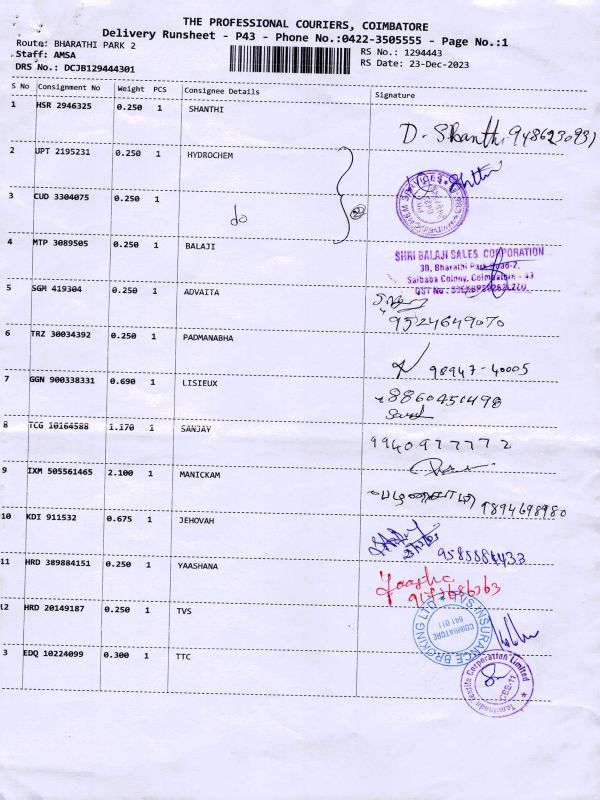 THE PROFESSIONAL COURIERS, COIMBATORE
Delivery Runsheet - P43 - Phone No.:0422-3505555 - Page No.:1
Route: BHARATHI PARK 2
RS No.: 1294443
Staff: AMSA
RS Date: 23-Dec-2023
DRS No.: DCJB129444301
S No Consignment No Weight PCS Consignee Details Signature
1 HSR 2946325 0.250 1 SHANTHI
D. Shanthi 9486230931
2 UPT 2195231 0.250 1 HYDROCHEM
3 CUD 3304075 0.250 1
do
2
4 MTP 3089505 0.250 1 BALAJI
SHRI BALAJI SALES CORPORATION
30, Bharathi Park Road-2,
Saibaba Colony, Coimbatore - 43
GST No
5 SGM 419304 0.250 1 ADVAITA
9524649070
6 TRZ 30034392 0.250 1 PADMANABHA
98947-40005
7 GGN 900338331 0.690 1 LISIEUX
8860451498
8 TCG 10164588 1.170 1 SANJAY
9940977772
9 IXM 505561465 2.100 1 MANICKAM
9894698980
10 KDI 911532 0.675 1 JEHOVAH
11 HRD 389884151 0.250 1 YAASHANA
12 HRD 20149187 0.250 1 TVS
TVS INSURANCE BROKING LTD
COIMBATORE
641 011
3 EDQ 10224099 0.300 1 TTC
Tamilnadu Corporation Limited
CBE-11